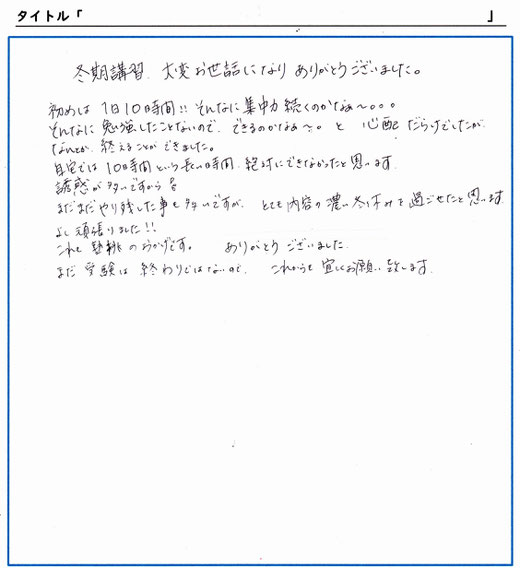 タイトル「 」
冬期講習、大変お世話になり ありがとうございました。
初めは 1日10時間!! そんなに集中力続くのかなぁ〜。。。
そんなに 勉強したことないので、できるのかなぁ〜。 と 心配だらけでしたが、
なんとか、終えることができました。
自宅では 10時間という長い時間、絶対にできなかったと思います。
誘惑が多いですから
まだまだやり残した事も多いですが、とても内容の濃い冬休みを過ごせたと思います。
よし頑張りました!!
これも のおかげです。 ありがとうございました。
まだ 受験は 終わりではないので、 これからも 宜しくお願い致します。